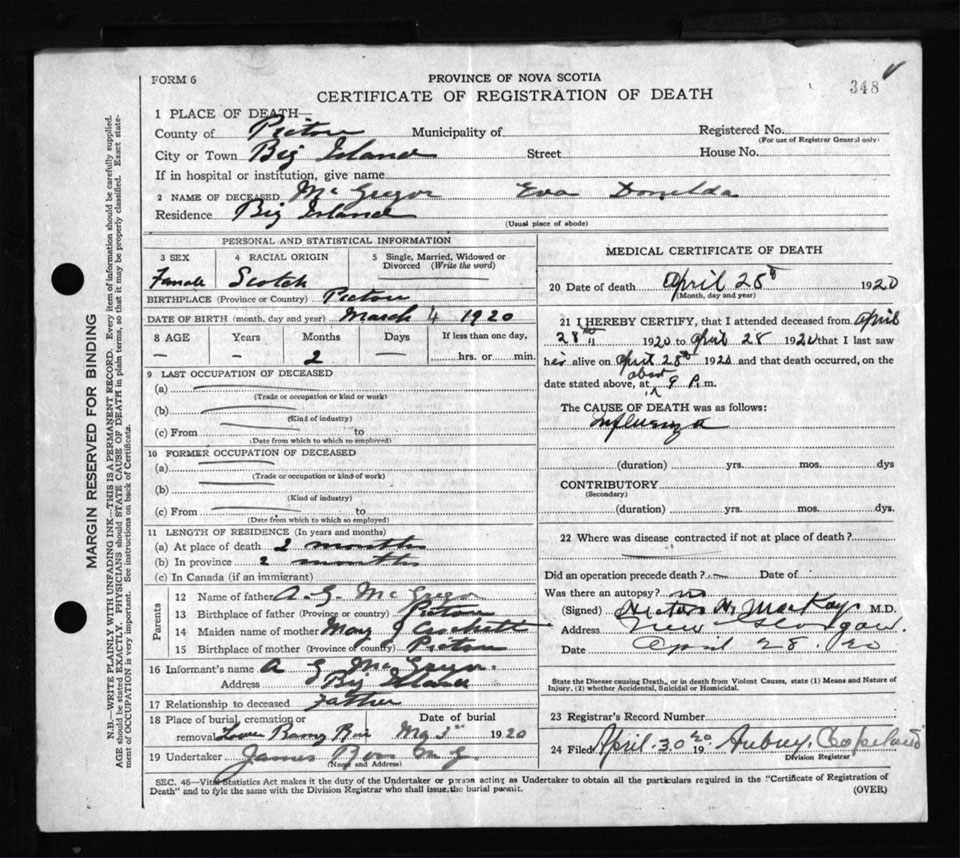 FORM 6
PROVINCE OF NOVA SCOTIA
CERTIFICATE OF REGISTRATION OF DEATH
348
1 PLACE OF DEATH—
County of Pictou Municipality of Registered No.
(For use of Registrar General only)
City or Town Big Island Street House No.
If in hospital or institution, give name
2 NAME OF DECEASED McGregor Eva Donelda
Residence Big Island
(Usual place of abode)
PERSONAL AND STATISTICAL INFORMATION
3 SEX 4 RACIAL ORIGIN 5 Single, Married, Widowed or Divorced (Write the word)
Female Scotch
BIRTHPLACE (Province or Country) Pictou
DATE OF BIRTH (month, day and year) March 4 1920
8 AGE Years Months Days If less than one day,
— — 2 — hrs. or min.
9 LAST OCCUPATION OF DECEASED
(a)
(Trade or occupation or kind or work)
(b)
(Kind of industry)
(c) From to
(Date from which to which so employed)
10 FORMER OCCUPATION OF DECEASED
(a)
(Trade or occupation or kind of work)
(b)
(Kind of industry)
(c) From to
(Date from which to which so employed)
11 LENGTH OF RESIDENCE (In years and months)
(a) At place of death 2 months
(b) In province 2 months
(c) In Canada (if an immigrant)
Parents
12 Name of father A. G. McGregor
13 Birthplace of father (Province or country) Pictou
14 Maiden name of mother Mary J Crockett
15 Birthplace of mother (Province or country) Pictou
16 Informant's name A G McGregor.
Address Big Island
17 Relationship to deceased Father
18 Place of burial, cremation or Date of burial
removal Lower Barny River May 1920
19 Undertaker James
(Name and Address)
MEDICAL CERTIFICATE OF DEATH
20 Date of death April 28th 1920
(Month, day and year)
21 I HEREBY CERTIFY, that I attended deceased from April
28th 1920 to April 28 1920 that I last saw
her alive on April 28th 1920 and that death occurred, on the
date stated above, at about 9 P. m.
The CAUSE OF DEATH was as follows:
Influenza
(duration) yrs. mos. dys
CONTRIBUTORY
(Secondary)
(duration) yrs. mos. dys.
22 Where was disease contracted if not at place of death?
Did an operation precede death? Date of
Was there an autopsy? no
(Signed) H. MacKay M.D.
Address New Glasgow.
Date April 28. 20
State the Disease causing Death, or in death from Violent Causes, state (1) Means and Nature of
Injury, (2) whether Accidental, Suicidal or Homicidal.
23 Registrar's Record Number
24 Filed April 30 1920 Aubrey Copeland
Division Registrar
SEC. 46—Vital Statistics Act makes it the duty of the Undertaker or person acting as Undertaker to obtain all the particulars required in the "Certificate of Registration of
Death" and to fyle the same with the Division Registrar who shall issue the burial permit. (OVER)
MARGIN RESERVED FOR BINDING
N.B.—WRITE PLAINLY WITH UNFADING INK—THIS IS A PERMANENT RECORD. Every item of information should be carefully supplied.
AGE should be stated EXACTLY. PHYSICIANS should STATE CAUSE OF DEATH in plain terms, so that it may be properly classified. Exact state-
ment of OCCUPATION is very important. See instructions on back of Certificate.